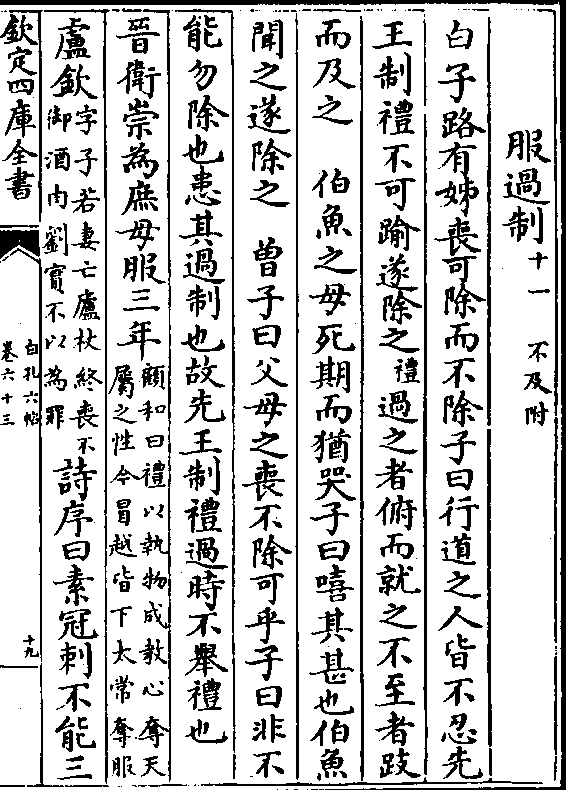 服過制十一不及附
白子路有姊喪可除而不除子曰行道之人皆不忍先
王制禮不可踰遂除之禮過之者俯而就之不至者跂
而及之　伯魚之母死期而猶哭子曰嘻其甚也伯魚
聞之遂除之　曽子曰父母之喪不除可乎子曰非不
能勿除也患其過制也故先王制禮過時不舉禮也
晉衛崇為庶母服三年顧和曰禮以執物成教心奪天
屬之性令冒越皆下太常奪服
盧欽字子若妻亡廬杖終喪不
御酒肉劉寔不以為罪詩序曰素冠刺不能三
欽定四庫全書
白孔六帖
卷六十三
十九